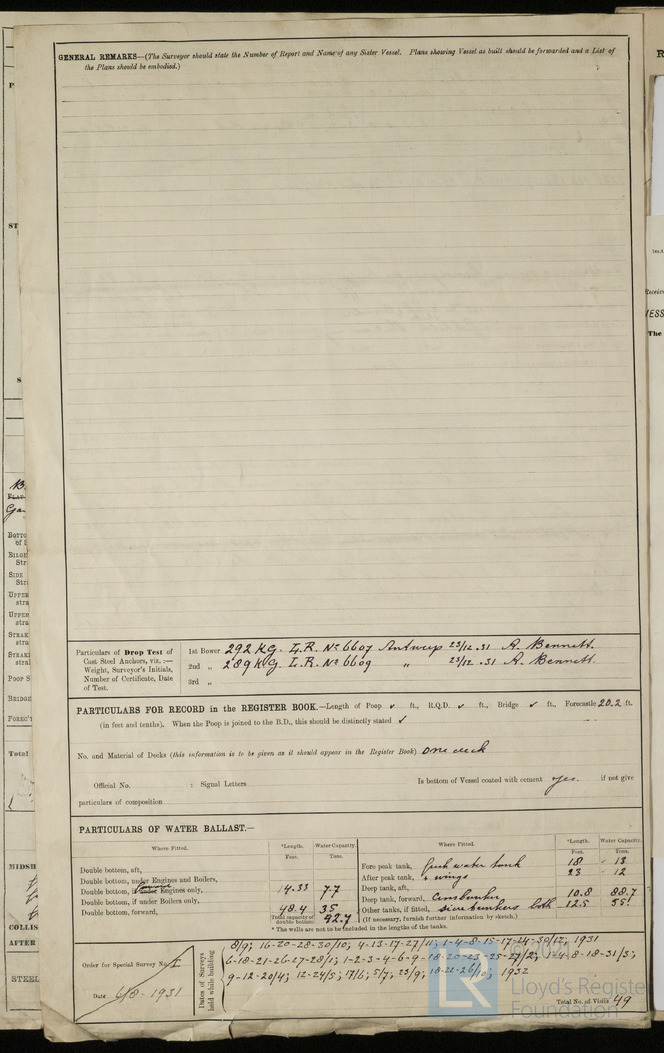 GENERAL REMARKS—(The Surveyor should state the Number of Report and Name of any Sister Vessel. Plans showing Vessel as built should be forwarded and a List of
the Plans should be embodied.)
Particulars of Drop Test of
Cast Steel Anchors, viz. :—
Weight, Surveyor's Initials,
Number of Certificate, Date
of Test.
1st Bower 292 KG. L.R. No 6607 Antwerp 23/12.31 A. Bennett.
2nd „ 289 KG. L.R. No 6609 „ 23/12.31 A. Bennett.
3rd „
PARTICULARS FOR RECORD in the REGISTER BOOK.—Length of Poop ✓ ft., R.Q.D. ✓ ft., Bridge ✓ ft., Forecastle 20.2 ft.
(in feet and tenths). When the Poop is joined to the B.D., this should be distinctly stated ✓
No. and Material of Decks (this information is to be given as it should appear in the Register Book) One deck
Official No. : Signal Letters Is bottom of Vessel coated with cement yes. if not give
particulars of composition
PARTICULARS OF WATER BALLAST.—
Where Fitted. *Length. Water Capacity.
Feet. Tons.
Double bottom, aft,
Double bottom, under Engines and Boilers,
Double bottom, under Engines only, 14.33 7.7
Double bottom, if under Boilers only,
Double bottom, forward, 48.4 35
Total capacity of double bottom 92.7
Where Fitted. *Length. Water Capacity.
Feet. Tons.
Fore peak tank, fresh water tank 18 13
After peak tank, & wings 23 12
Deep tank, aft,
Deep tank, forward, 10.8 88.7
Other tanks, if fitted, side bunkers both 12.5 55
(If necessary, furnish further information by sketch.)
* The wells are not to be included in the lengths of the tanks.
Order for Special Survey No. I
Date 6/8 - 1931
Dates of Surveys
held while building
8/9; 16-20-28-30/10; 4-13-17-27/11; 1-4-8-15-17-24-30/12, 1931
6-18-21-26-27-28/1; 1-2-3-4-6-9-18-20-23-25-27/2; 1-4-8-18-31/3;
9-12-20/4; 12-24/5; 17/6; 5/7; 23/9; 18-22-26/10; 1932
Total No. of Visits 49
© 2021
LR
Lloyd's Register
Foundation